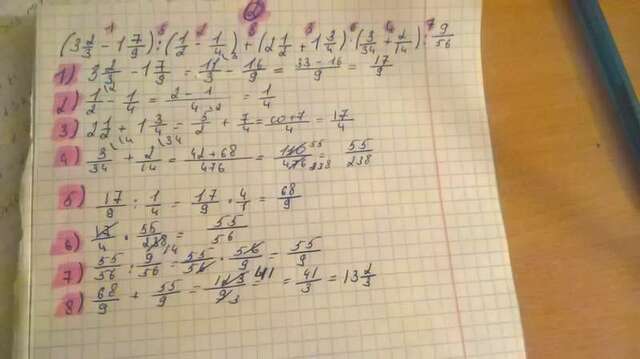 (3 2/3 − 1 7/9) : (1/2 − 1/4) + (2 1/2 + 1 3/4) (3/34 + 2/14) : 9/56
1) 3 2/3 − 1 7/9 = 11/3 − 16/9 = 33−16/9 = 17/9
2) 1/2 − 1/4 = 2−1/4 = 1/4
3) 2 1/2 + 1 3/4 = 5/2 + 7/4 = 10+7/4 = 17/4
4) 3/34 + 2/14 = 42+68/476 = 110/476 = 55/238
5) 17/9 : 1/4 = 17/9 · 4/1 = 68/9
6) 17/4 · 55/238 = 55/56
7) 55/56 : 9/56 = 55/56 · 56/9 = 55/9
8) 68/9 + 55/9 = 123/9 = 41/3 = 13 2/3